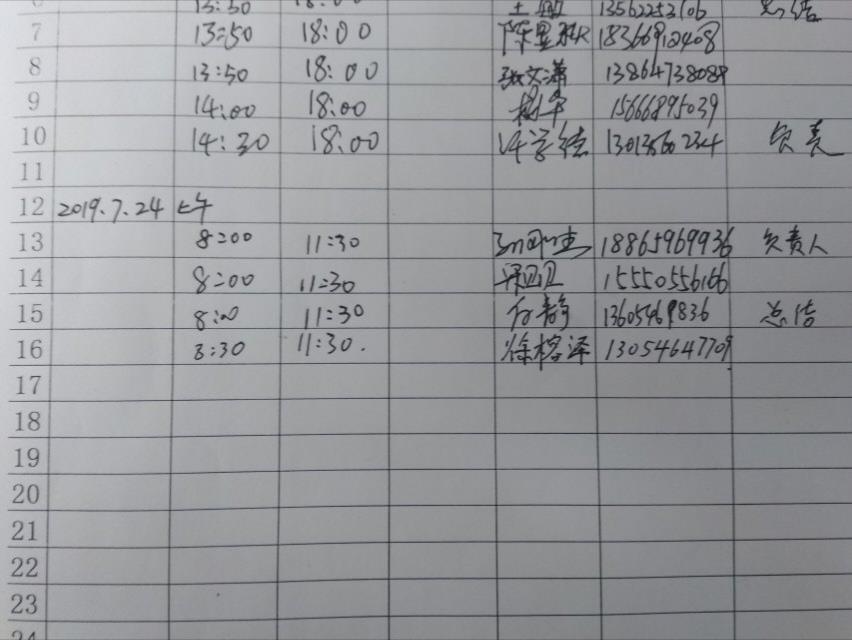 13:50 18:00
7 13:50 18:00 18366912408
8 13:50 18:00 张文潇 13864738088
9 14:00 18:00 15666895039
10 14:30 18:00 负责
11
12 2019.7.24 上午
13 8:00 11:30 18865969936 负责人
14 8:00 11:30 15550556166
15 8:00 11:30 静 13605469836 总结
16 8:30 11:30. 徐榕泽 13054647709
17
18
19
20
21
22
23
24